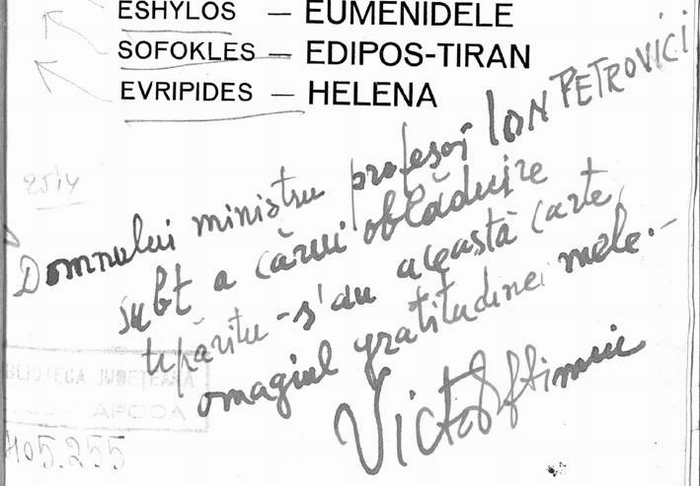 ESHYLOS — EUMENIDELE
SOFOKLES — EDIPOS-TIRAN
EVRIPIDES — HELENA
Domnului ministru profesor ION PETROVICI
subt a cărui oblăduire
tipăritu-s'au această carte,
omagiul gratitudinei mele.—
Victor Eftimiu
25/4
BLIOTECA JUDEȚEANĂ
APOCA
405.255